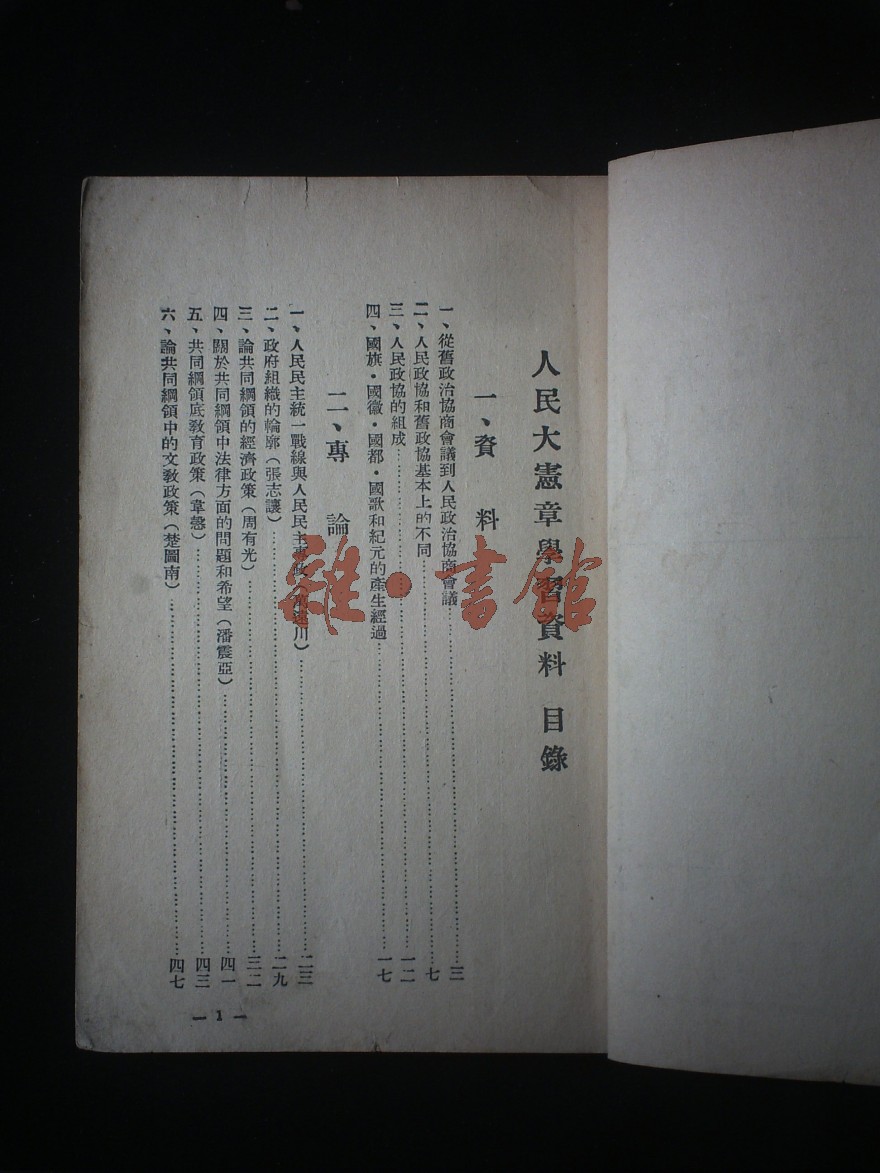 人民大憲章學習資料 目錄
一、資料
一、從舊政治協商會議到人民政治協商會議…………三
二、人民政協和舊政協基本上的不同…………七
三、人民政協的組成…………一二
四、國旗·國徽·國都·國歌和紀元的產生經過…………一七
二、專論
一、人民民主統一戰線與人民民主專政（ 遠川）…………二三
二、政府組織的輪廓（張志讓）…………二九
三、論共同綱領的經濟政策（周有光）…………三二
四、關於共同綱領中法律方面的問題和希望（潘震亞）…………四一
五、共同綱領底教育政策（韋慤）…………四三
六、論共同綱領中的文教政策（楚圖南）…………四七
— 1 —
雜·書館